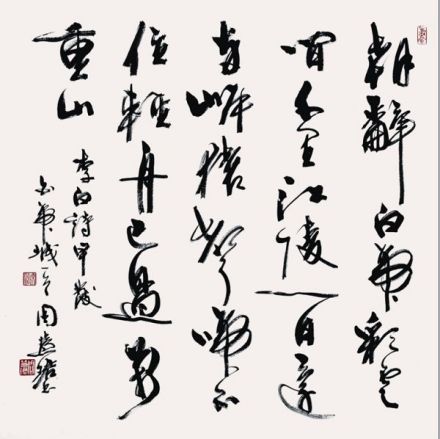 朝辭白帝彩雲
間千里江陵一日還
兩岸猿聲啼不
住輕舟已過萬
重山
李白詩早發
白帝城一首周